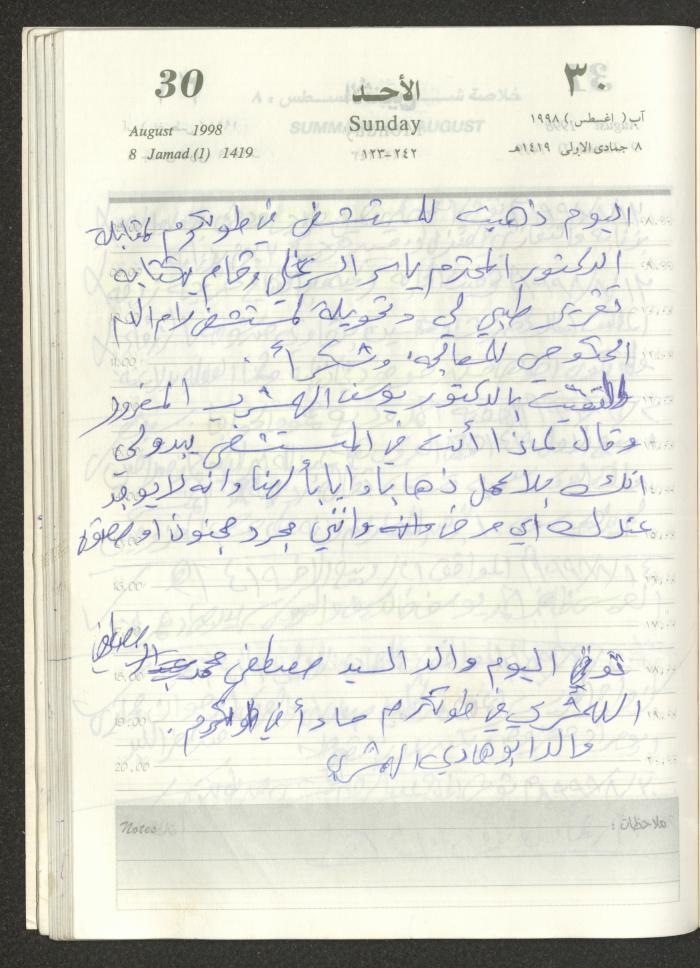 30
الأحد
٣٠
August 1998
Sunday
آب (اغسطس) ١٩٩٨
8 Jamad (1) 1419
١٢٣-٢٤٢
٨ جمادى الاولى ١٤١٩هـ
اليوم ذهبت للمستشفى في طولكرم لمقابلة
الدكتور المحترم ياسر وقام بكتابة
تقرير طبي لي وتحويلة لمستشفى رام الله
الحكومي للمعالجة. وشكراً.
والتقيت بالدكتور يوسف الهشري المغرور
وقال لماذا أنت في المستشفى يبدو لي
انك بلا عمل ذهاباً واياباً لهنا وانه لا يوجد
عندك اي مرض وانني مجرد مجنون او
توفي اليوم والد السيد مصطفى محمد مصطفى
في طولكرم مساءاً في طولكرم.
والد ابو هادي الهشري
Notes
ملاحظات :